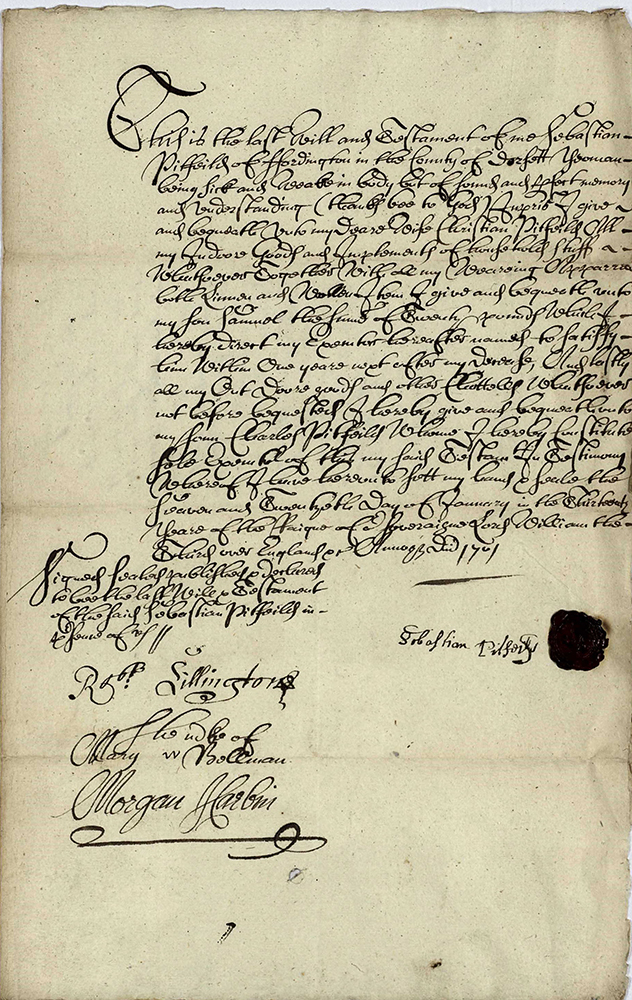 This is the last Will and Testament of me Sebastian
Pitfeild of ffordington in the County of Dorsett Yeoman
being sick and weake in body but of sound and pfect memory
and understanding (thanks bee to God) Impris I give
and bequeath unto my Deare Wife Christian Pitfeild All
my Indoore Goods and Implements of household stuffe
whatsoever Together with all my Wearing Apparra
both Linnen and Wollen Item I give and bequeath unto
my son Samuel the sume of Twenty pounds which I
hereby direct my Executor hereafter named to satisfy
him within One yeare next after my Decease, And lastly
all my Out Doore goods and other Chattells whatsoever
not before bequeathed I hereby give and bequeath unto
my sonn Charles Pitfeild whome I hereby constitute
sole Executor of this my said Testamt In Testimony
whereof I have hereunto sett my hand & seale the
seaven and Twentyeth Day of January in the Thirteenth
Yeare of the Raigne of Soveraigne Lord William the
Third over England &c Annoq Dni 1701
Signed sealed published & declared
to bee the last Will & Testament
of the said Sebastian Pitfeild in
psence of us
Sebastian Pitfeild
Robt Lillington
The mke of
Mary W Bellman
Morgan Harbin